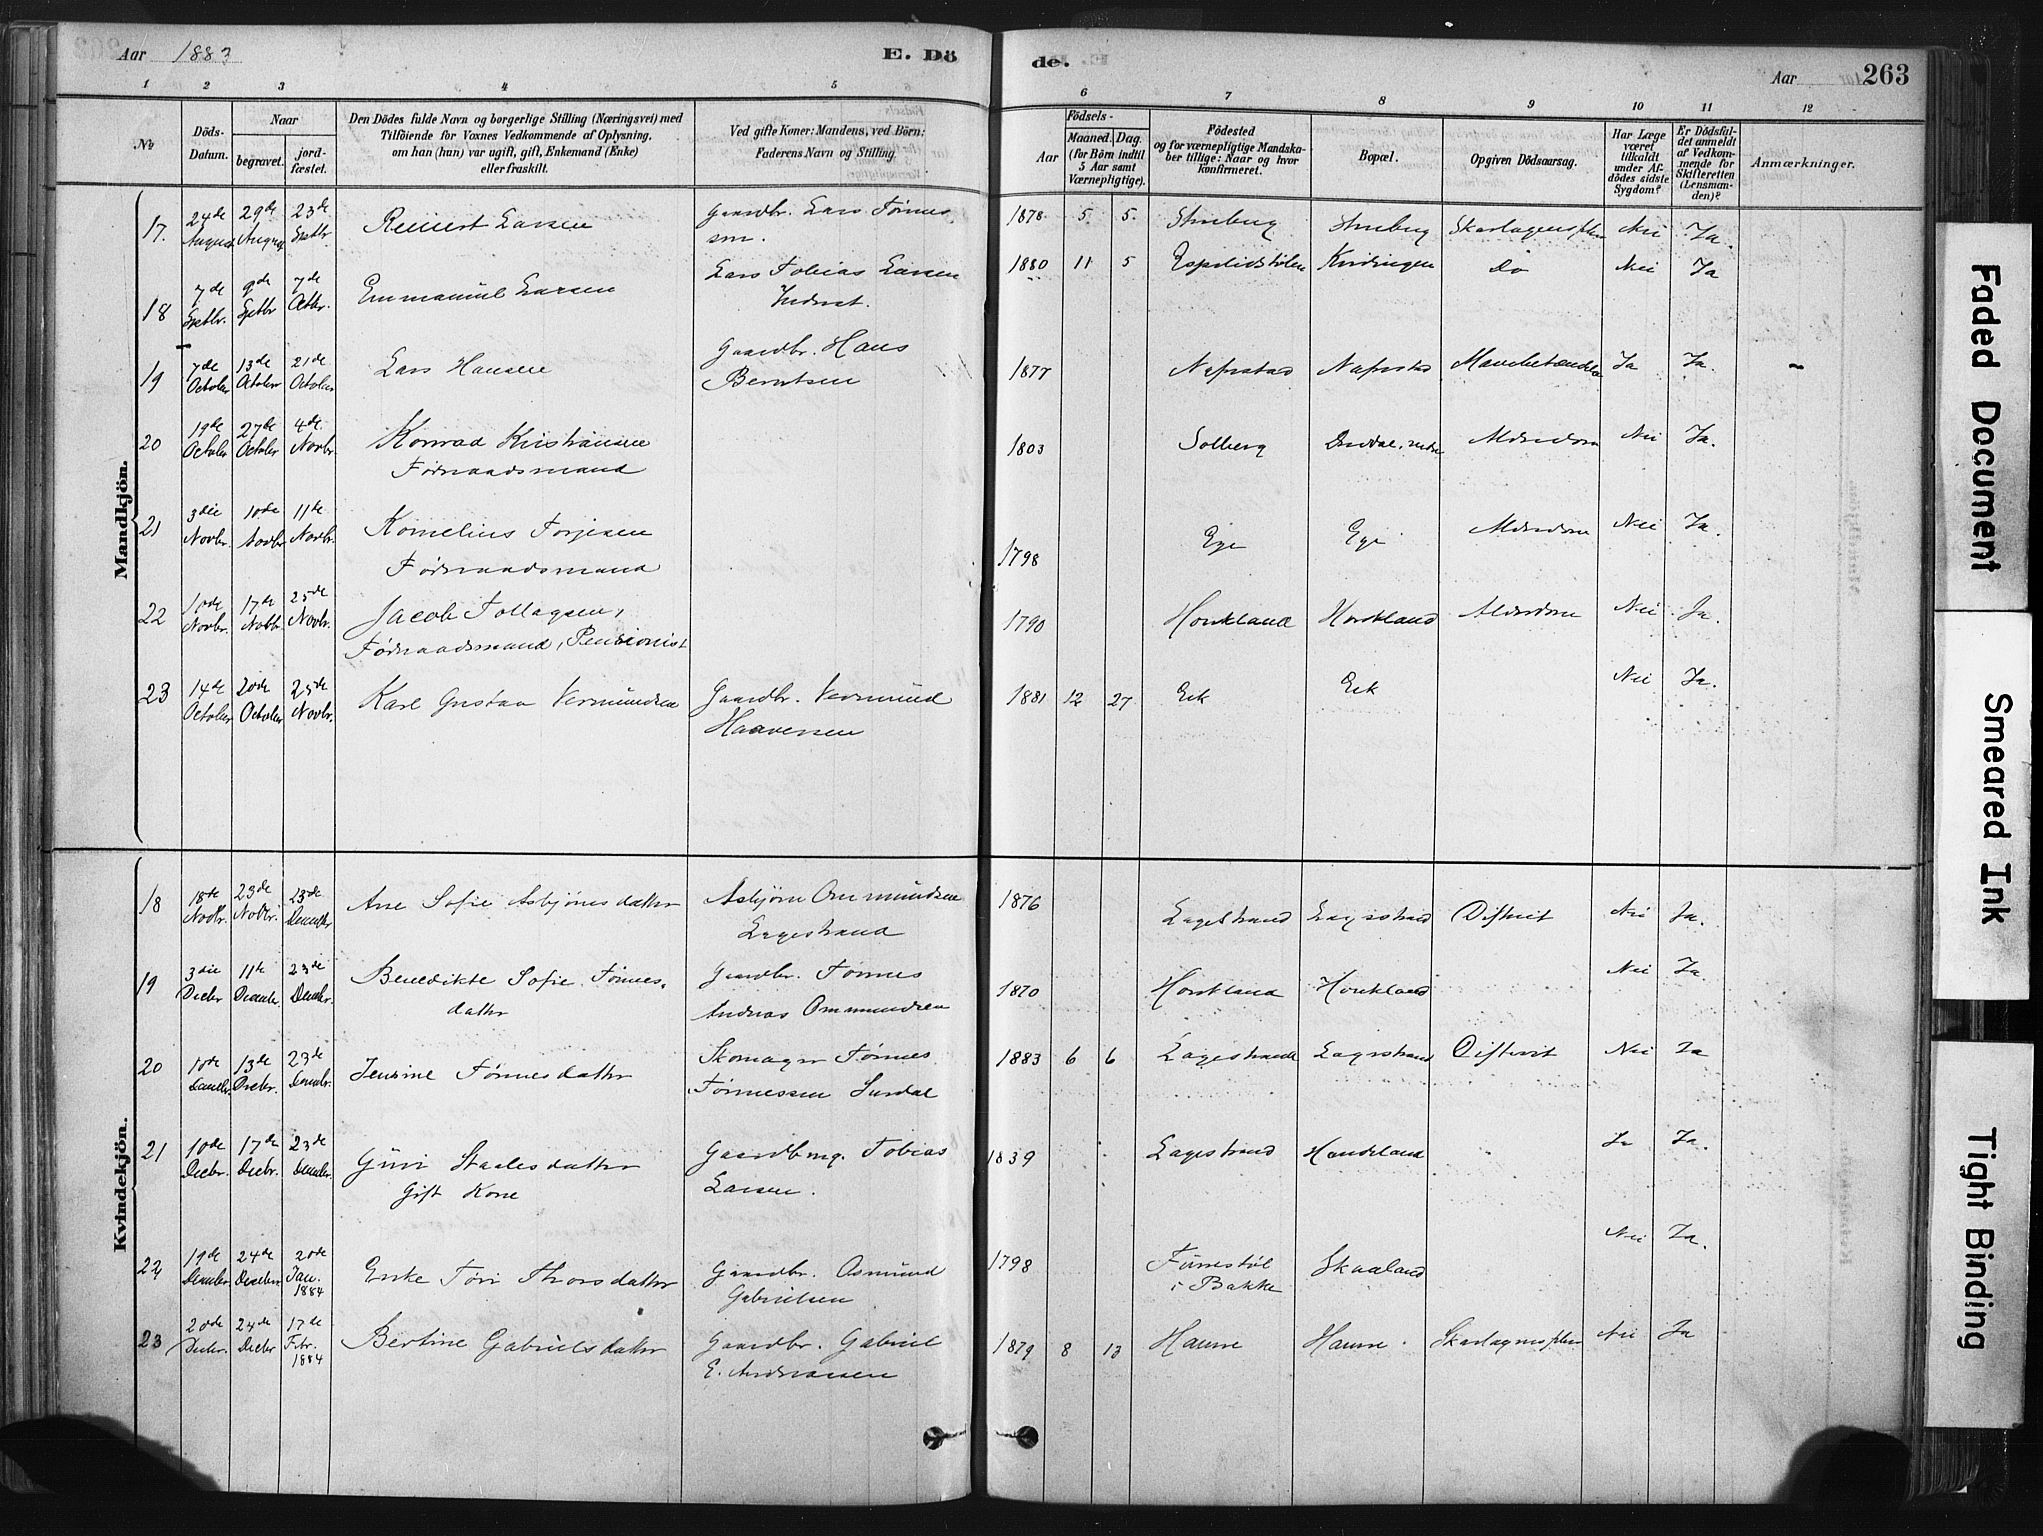 Aar 1883
E. Dö
de.
Aar
263
1 2 3 4 5 6 7 8 9 10 11 12
No
Döds-Datum.
Naar
begravet.
jord-fæstet.
Den Dödes fulde Navn og borgerlige Stilling (Næringsvei) med
Tilföiende for Voxnes Vedkommende af Oplysning,
om han (hun) var ugift, gift, Enkemand (Enke)
eller fraskilt.
Ved gifte Koner: Mandens, ved Börn:
Faderens Navn og Stilling.
Födsels-
Aar
Maaned. Dag.
(for Börn indtil
5 Aar samt
Værnepligtige).
Födested
og for værnepligtige Mandska-
ber tillige: Naar og hvor
konfirmeret.
Bopæl.
Opgiven Dödsaarsag.
Har Læge
været
tilkaldt
under Af-
dödes sidste
Sygdom?
Er Dödsfal-
det anmeldt
af Vedkom-
mende for
Skifteretten
(Lensman-
den)?
Anmærkninger.
Mandkjön.
17. 24de August 29de August 23de Septbr. Reinert Larsen Gaardbr. Lars Tønnes
sen. 1878 5 5. Stueberg Stueberg Skarlagensfeber Nei Ja.
18 7de Septbr. 9de Septbr 7de Octbr. Emmanuel Larsen Lars Tobias Larsen
Inderst. 1880 11 5 Espelidstølen Kvidingen Do Nei Ja
19 7de October 13de October 21de October Lars Hansen Gaardbr. Hans
Berntsen 1877 Nafrstad Nafrstad Ja Ja.
20 19de October 27de October 4de Novbr. Konrad Kristiansen
Føderaadsmand 1803 Solberg Alderdom Nei Ja.
21 3die Novbr. 10de Novbr 11te Novbr. Kornelius Torjesen
Føderaadsmand 1798 Ege Ege Alderdom Nei Ja.
22 10de Novbr. 17de Novbr. 25de Novbr. Jacob Tollagsen,
Føderaadsmand, Pensionist 1790 Hovkland Hovkland Alderdom Nei Ja.
23 14de October 20de October 25de Novbr. Karl Gustav Vermundsen Gaardbr. Vermund
Haaversen 1881 12 27 Eek Eek Nei Ja.
Kvindekjön.
18 18de Novbr. 23de Novbr. 23de December Ane Sofie Asbjørnsdatter Asbjørn Ommundsen
Lagestrand 1876 Lagestrand Lagestrand Difterit Nei Ja.
19 3die Decbr 11te December 23de Decembr. Benedikte Sofie Tønnes-
datter Gaardbr. Tønnes
Andreas Ommundsen 1870 Hovkland Hovkland Nei Ja.
20 10de December 13de Decbr. 23de Decembr. Jensine Tønnesdatter Skomager Tønnes
Tønnessen Surdal 1883 6 6 Lagestrand Lagestrand Difterit Nei Ja
21 10de Decbr. 17de Decbr. 23de December Guri Staalesdatter
Gift Kone Gaardbrug. Tobias
Larsen. 1839 Lagestrand Hovkland Ja Ja.
22 19de December 24de December 20de Jan. 1884 Enke Tori Thorsdatter Gaardbr. Osmund
Gabrielsen 1798
i Bakke Skaaland Nei Ja.
23 20de Decbr. 24de Decbr 17de Febr. 1884 Bertine Gabrielsdatter Gaardbr. Gabriel
E. Andreasen 1879 8 13 Haune Haune. Skarlagensfeber Nei Ja
Faded Document
Smeared Ink
Tight Binding